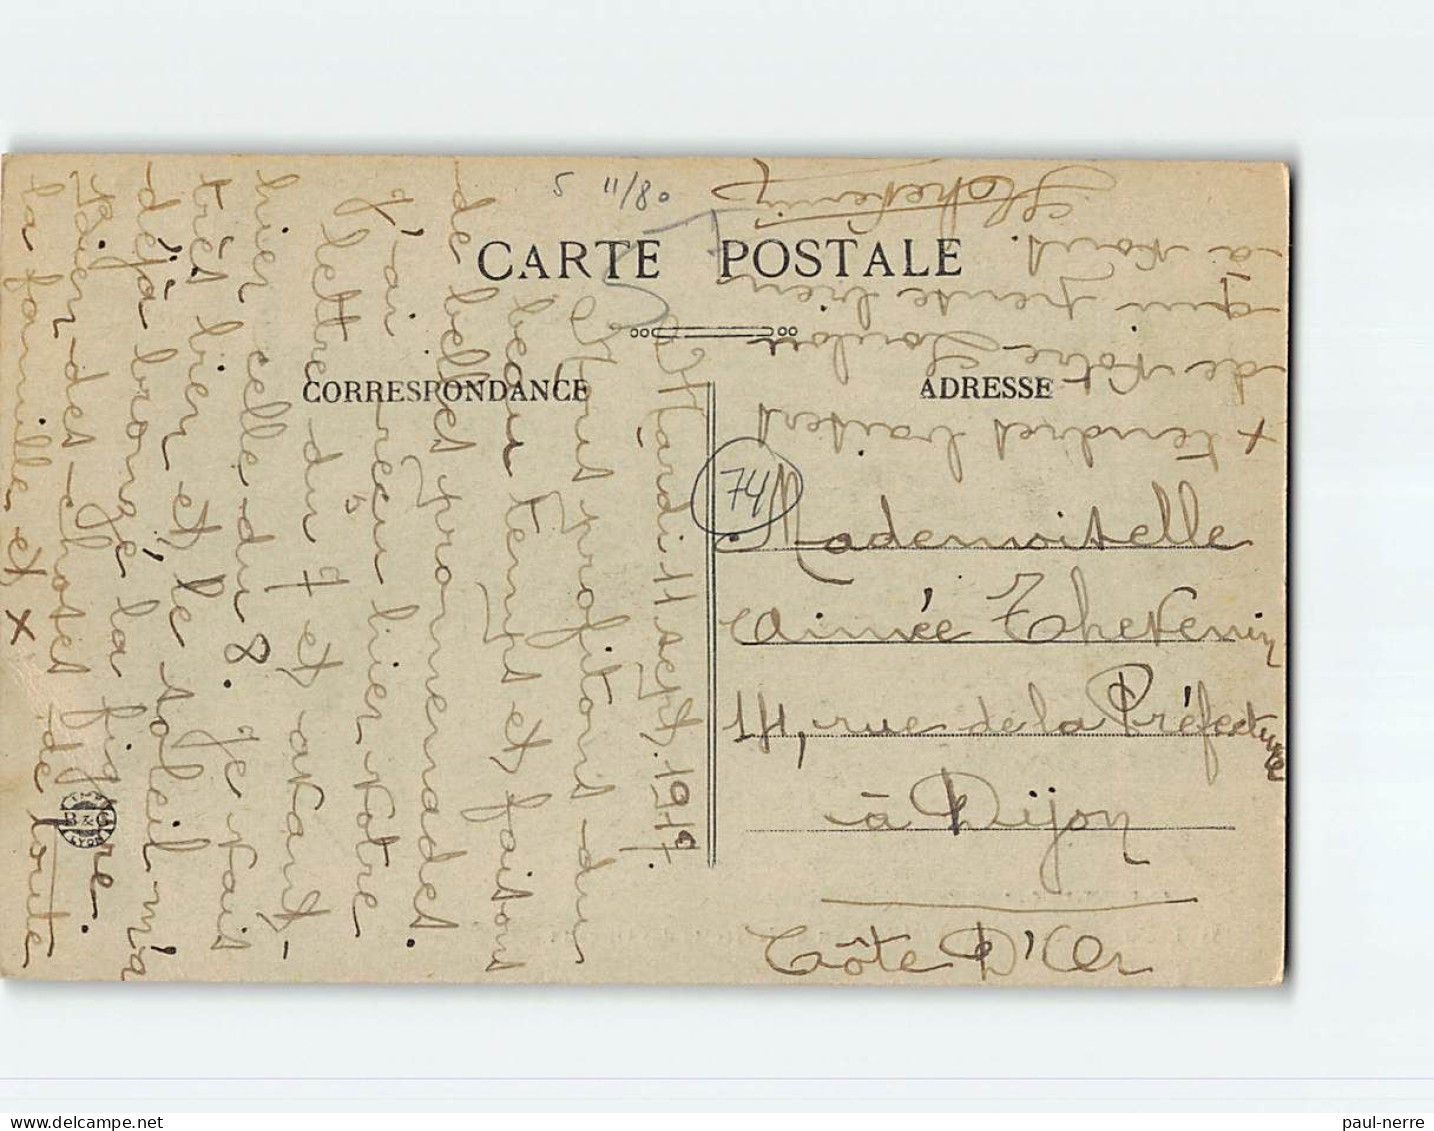 5 11/80
CARTE POSTALE
CORRESPONDANCE
ADRESSE
74
Mardi 11 sept. 1917.
Nous profitons du
beau temps et faisons
de belles promenades.
J'ai reçu hier votre
lettre du 7 et avant-
hier celle du 8. Je vais
très bien et le soleil m'a
déjà bronzé la figure.
Bien des choses de toute
la famille et x
x tendres baisers
de votre Loulou
qui pense bien
à vous.
Thevenin
Mademoiselle
Aimée Thevenin
14, rue de la Préfecture
à Dijon
Côte D'Or
IMP.
B & G
LYON
paul-nerre